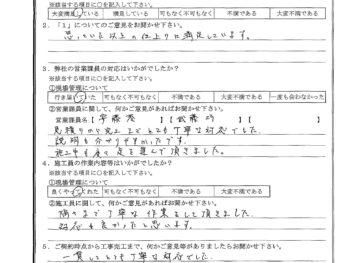 ※該当する項目に○を記入して下さい。
大変満足している 満足している 可もなく不可もなく 不満である 大変不満である
2．「1」についてのご意見をお聞かせ下さい。
思っていた以上の仕上りに満足しています。
3．弊社の営業課員の対応はいかがでしたか？
※該当する項目に○を記入して下さい。
①現場管理について
行き届いていた 可もなく不可もなく 不満である 大変不満である 一度も会わなかった
②営業課員に関して、何かご意見があればお聞かせ下さい。
営業課員名【 】【 】【 】
見積りから完工までとても丁寧な対応でした。
説明も分かりやすかったです。
施工中も良く足を運んで頂きました。
4．施工員の作業内容等はいかがでしたか？
※該当する項目に○を記入して下さい。
①現場管理について
良くやっていた 可もなく不可もなく 不満である 大変不満である
②施工員に関して、何かご意見があればお聞かせ下さい。
隅々まで丁寧な作業をして頂きました。
対応も良かったと思います。
5．ご契約時点から工事完工まで、何かご意見等がありましたらお聞かせ下さい。
一貫してとても丁寧な対応でした